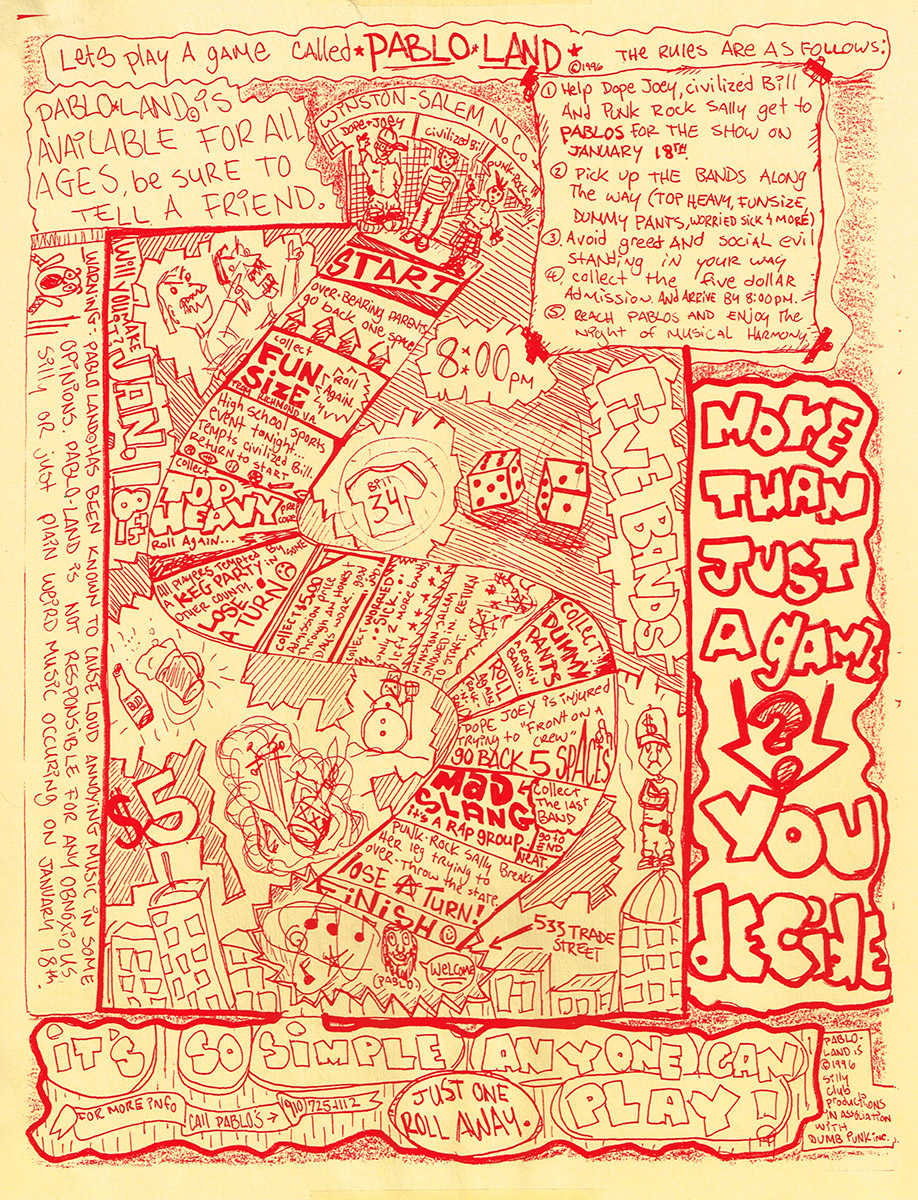 Let's play a game called *PABLO*LAND*
©1996
THE RULES ARE AS FOLLOWS:
PABLO*LAND© IS
AVAILABLE FOR ALL
AGES, be SURE TO
TELL A FRIEND.
WINSTON-SALEM N.C.
DOPE JOEY
Civilized Bill
PUNK-ROCK
① Help Dope Joey, civilized Bill
And Punk Rock Sally get to
PABLOS FOR THE SHOW ON
JANUARY 18TH
② Pick up THE BANDS ALONG
The WAY (TOP HEAVY, FUNSIZE,
DUMMY PANTS, WORRIED SICK & MORE)
③ Avoid greed AND social evil
STANDING IN YOUR WAY
④ Collect the five dollAR
Admission. AND ARRIVE By 8:00 PM.
⑤ REACH PABLOS AND ENJOY The
Night of Musical HARMONY
START
over-bearing parents
go back one space!
collect
FUN
SIZE
FROM RICHMOND, VA.
roll
Again
High school sports
event tonight...
Tempts civilized Bill.
Return to START
collect
TOP
HEAVY
Roll Again...
All players tempted by
A KEG PARTY in some
other county.
LOSE
A TURN!
collect $5.00
Admission price
Through
collect
WORRIED
SICK
will 2
Left more bands
RETURN
TO START
collect
DUMMY
PANTS
ROLL
DOPE JOEY IS INJURED
TRYING TO "FRONT ON A
CREW"
go BACK 5 SPACES
MAD
SLANG
it's A RAP group
collect
The last
BAND
go to
END
NEAT
Punk-Rock Sally Breaks
Her leg trying to
over-Throw the state.
lOSE A TURN!
FiNiSH
(PABLO)
Welcome
533 TRADE
STREET
Will you MAKE
IT?
JAN. 18th
8:00 PM
Bill
34
FIVE BANDS
BUD
$5
$
WARNING- PABLO LAND© HAS BEEN KNOWN TO CAUSE LOUD ANNOYING MUSIC IN SOME
OPINIONS. PABLO-LAND IS NOT RESPONSIBLE FOR ANY OBNOXIOUS
silly OR JUST PLAIN WEIRD MUSIC OCCURING ON JANUARY 18th.
MORE
THAN
JUST
A gAME
?
YOU
DECIDE
iT'S SO SIMPLE ANYONE CAN
PLAY!
FOR MORE info
CALL PABLO'S →
(910) 725-1112
JUST ONE
ROLL AWAY.
PABLO-
LAND IS
©1996
silly
club
productions
in association
WITH
DUMB PUNK inc.